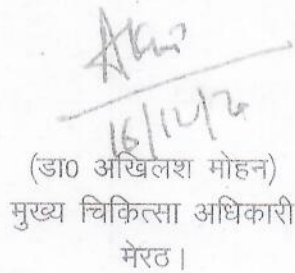 16/12/2
(डा० अखिलश मोहन)
मुख्य चिकित्सा अधिकारी
मेरठ।